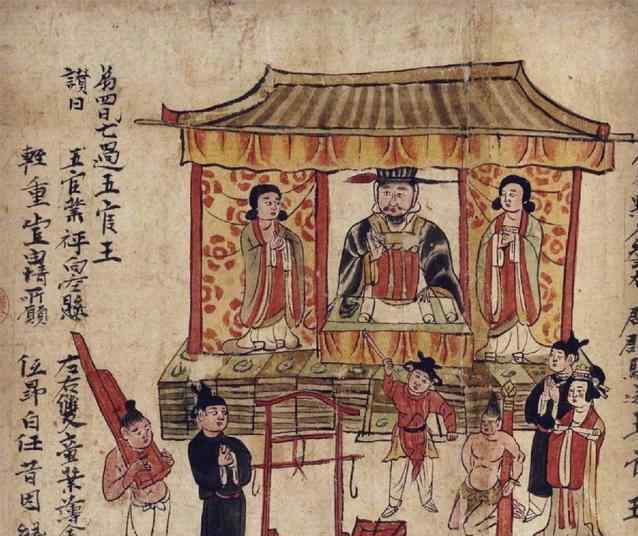 苐四日七過五官王
讃曰 五官業秤向空懸 左右雙童業簿全
輕重豈由情所願 低昂自任昔因緣